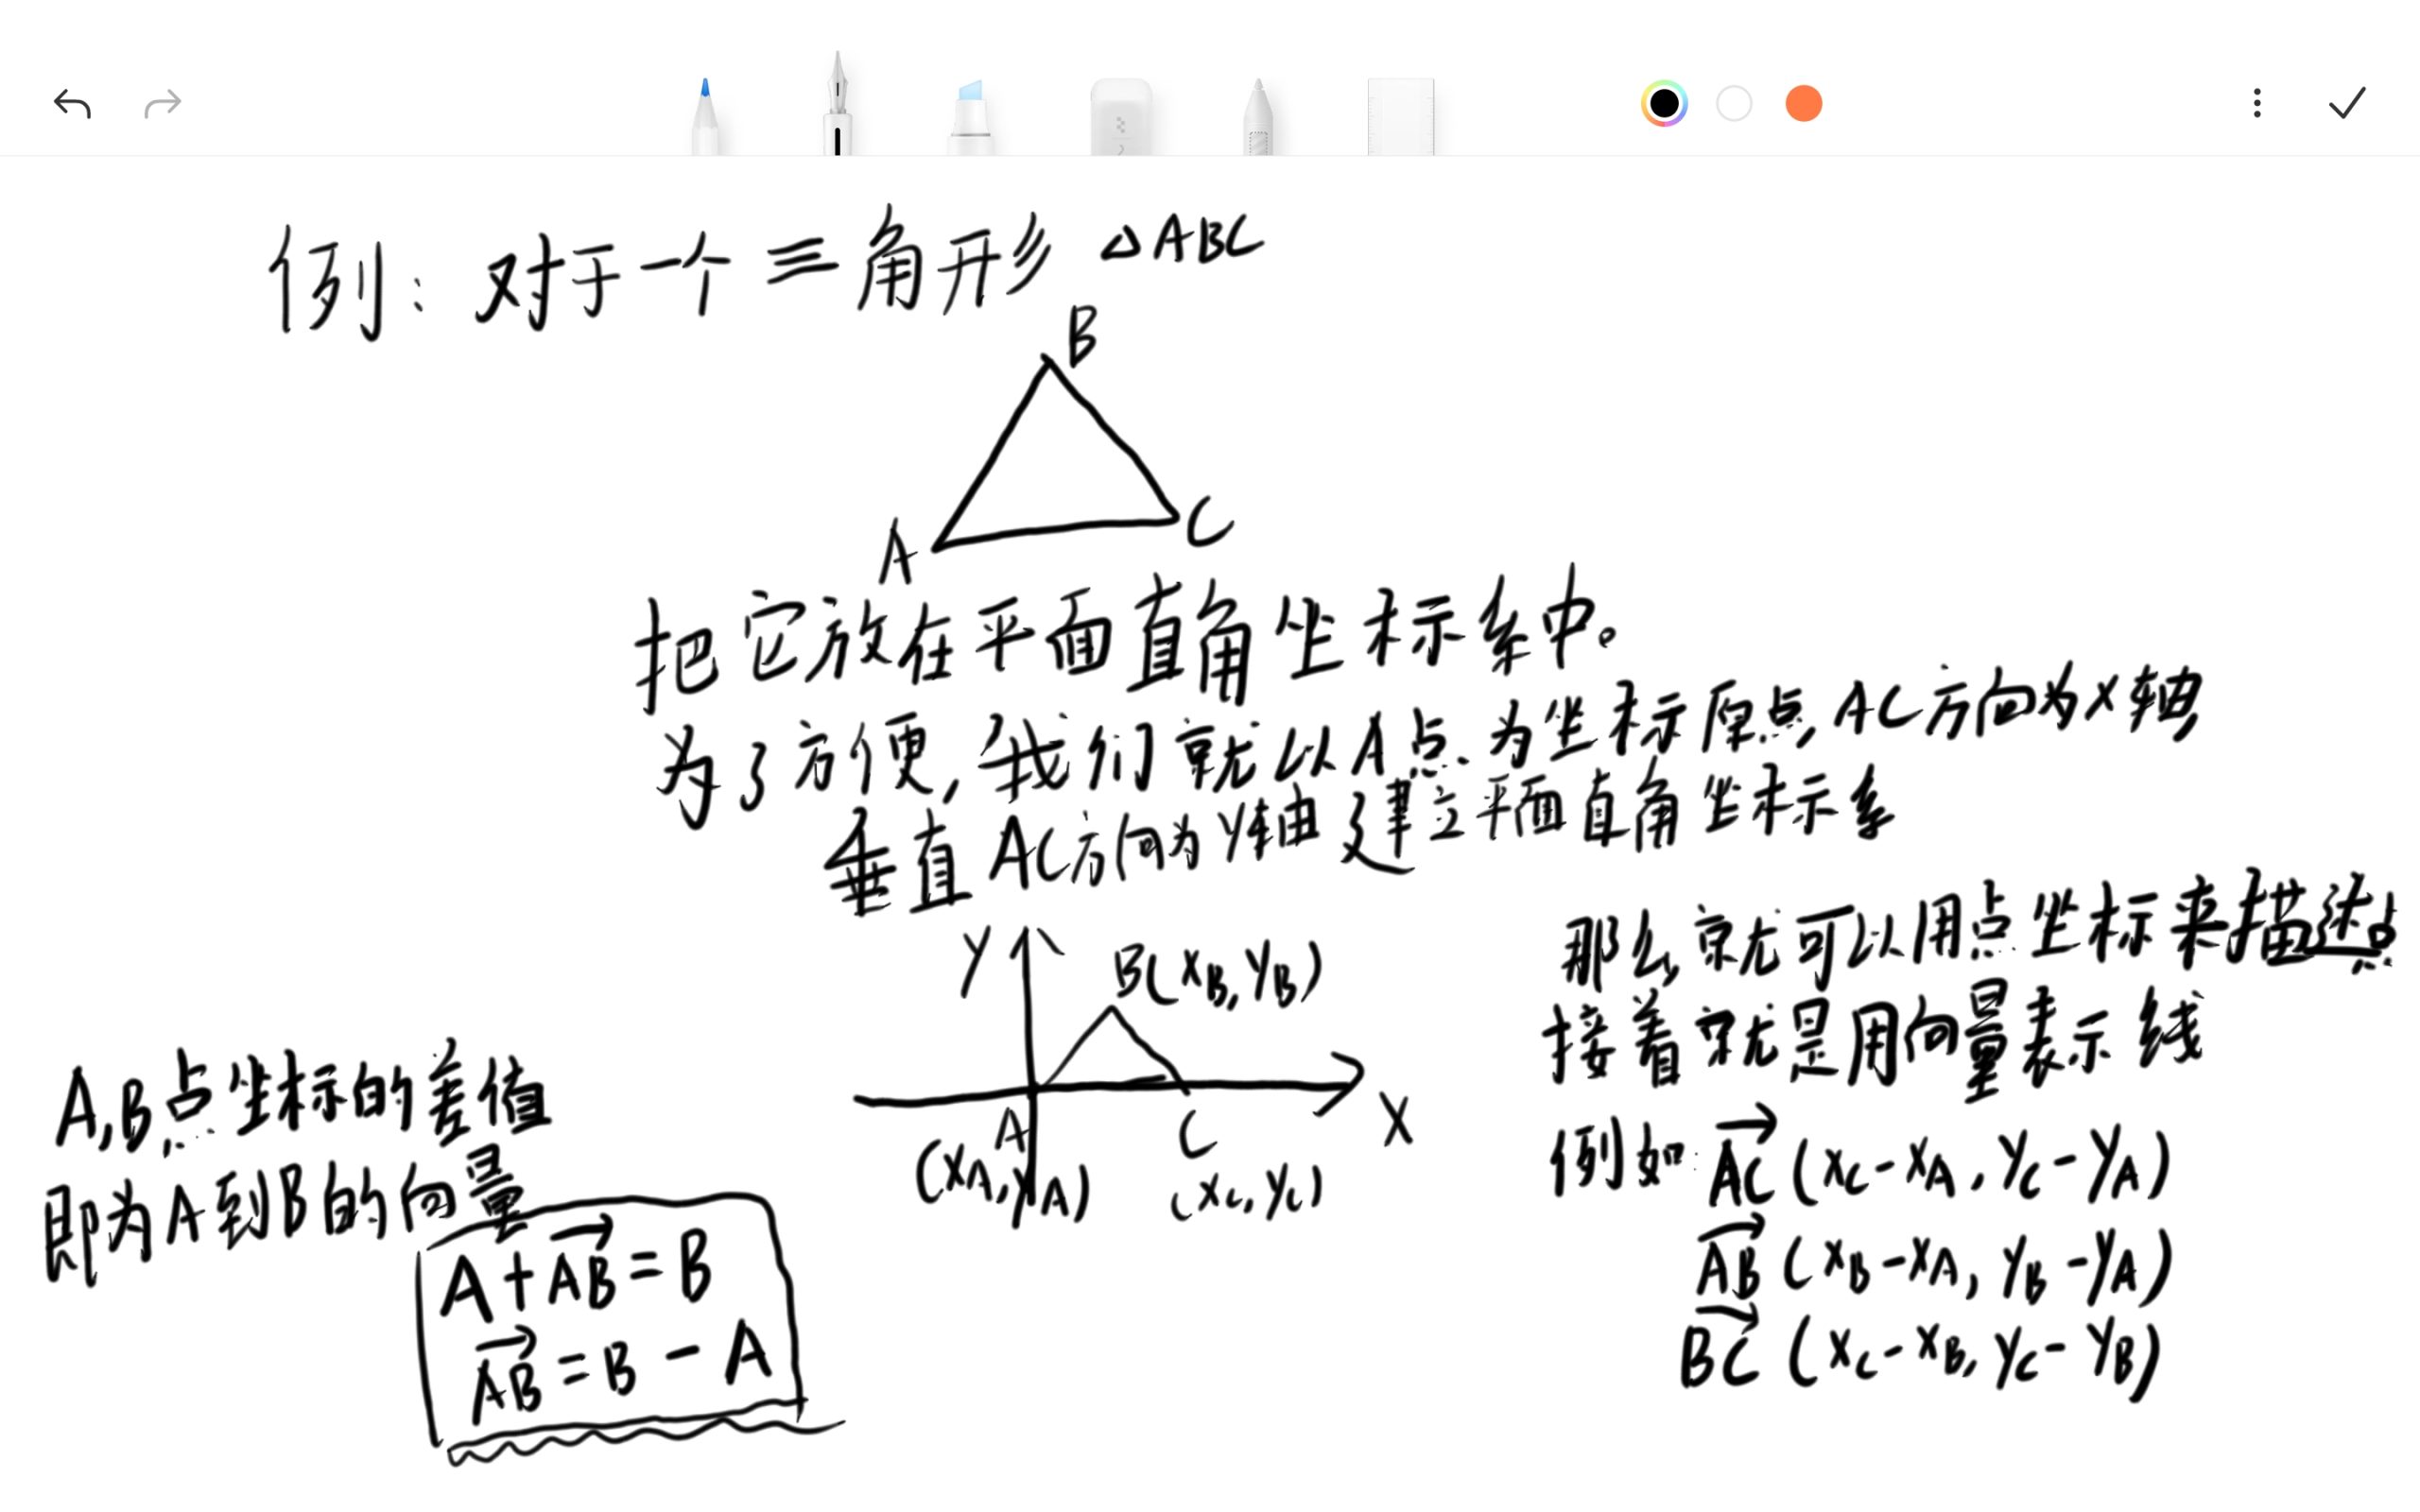 例：对于一个三角形 △ABC
B
A
C
把它放在平面直角坐标系中。
为了方便，我们就以A点为坐标原点，AC方向为X轴
垂直AC方向为Y轴建立平面直角坐标系
Y
B(XB,YB)
X
A
(XA,YA)
C
(XC,YC)
那么就可以用点坐标来描述点
接着就是用向量表示线
例如：AC→(XC-XA,YC-YA)
AB→(XB-XA,YB-YA)
BC→(XC-XB,YC-YB)
A,B点坐标的差值
即为A到B的向量
A+AB→=B
AB→=B-A